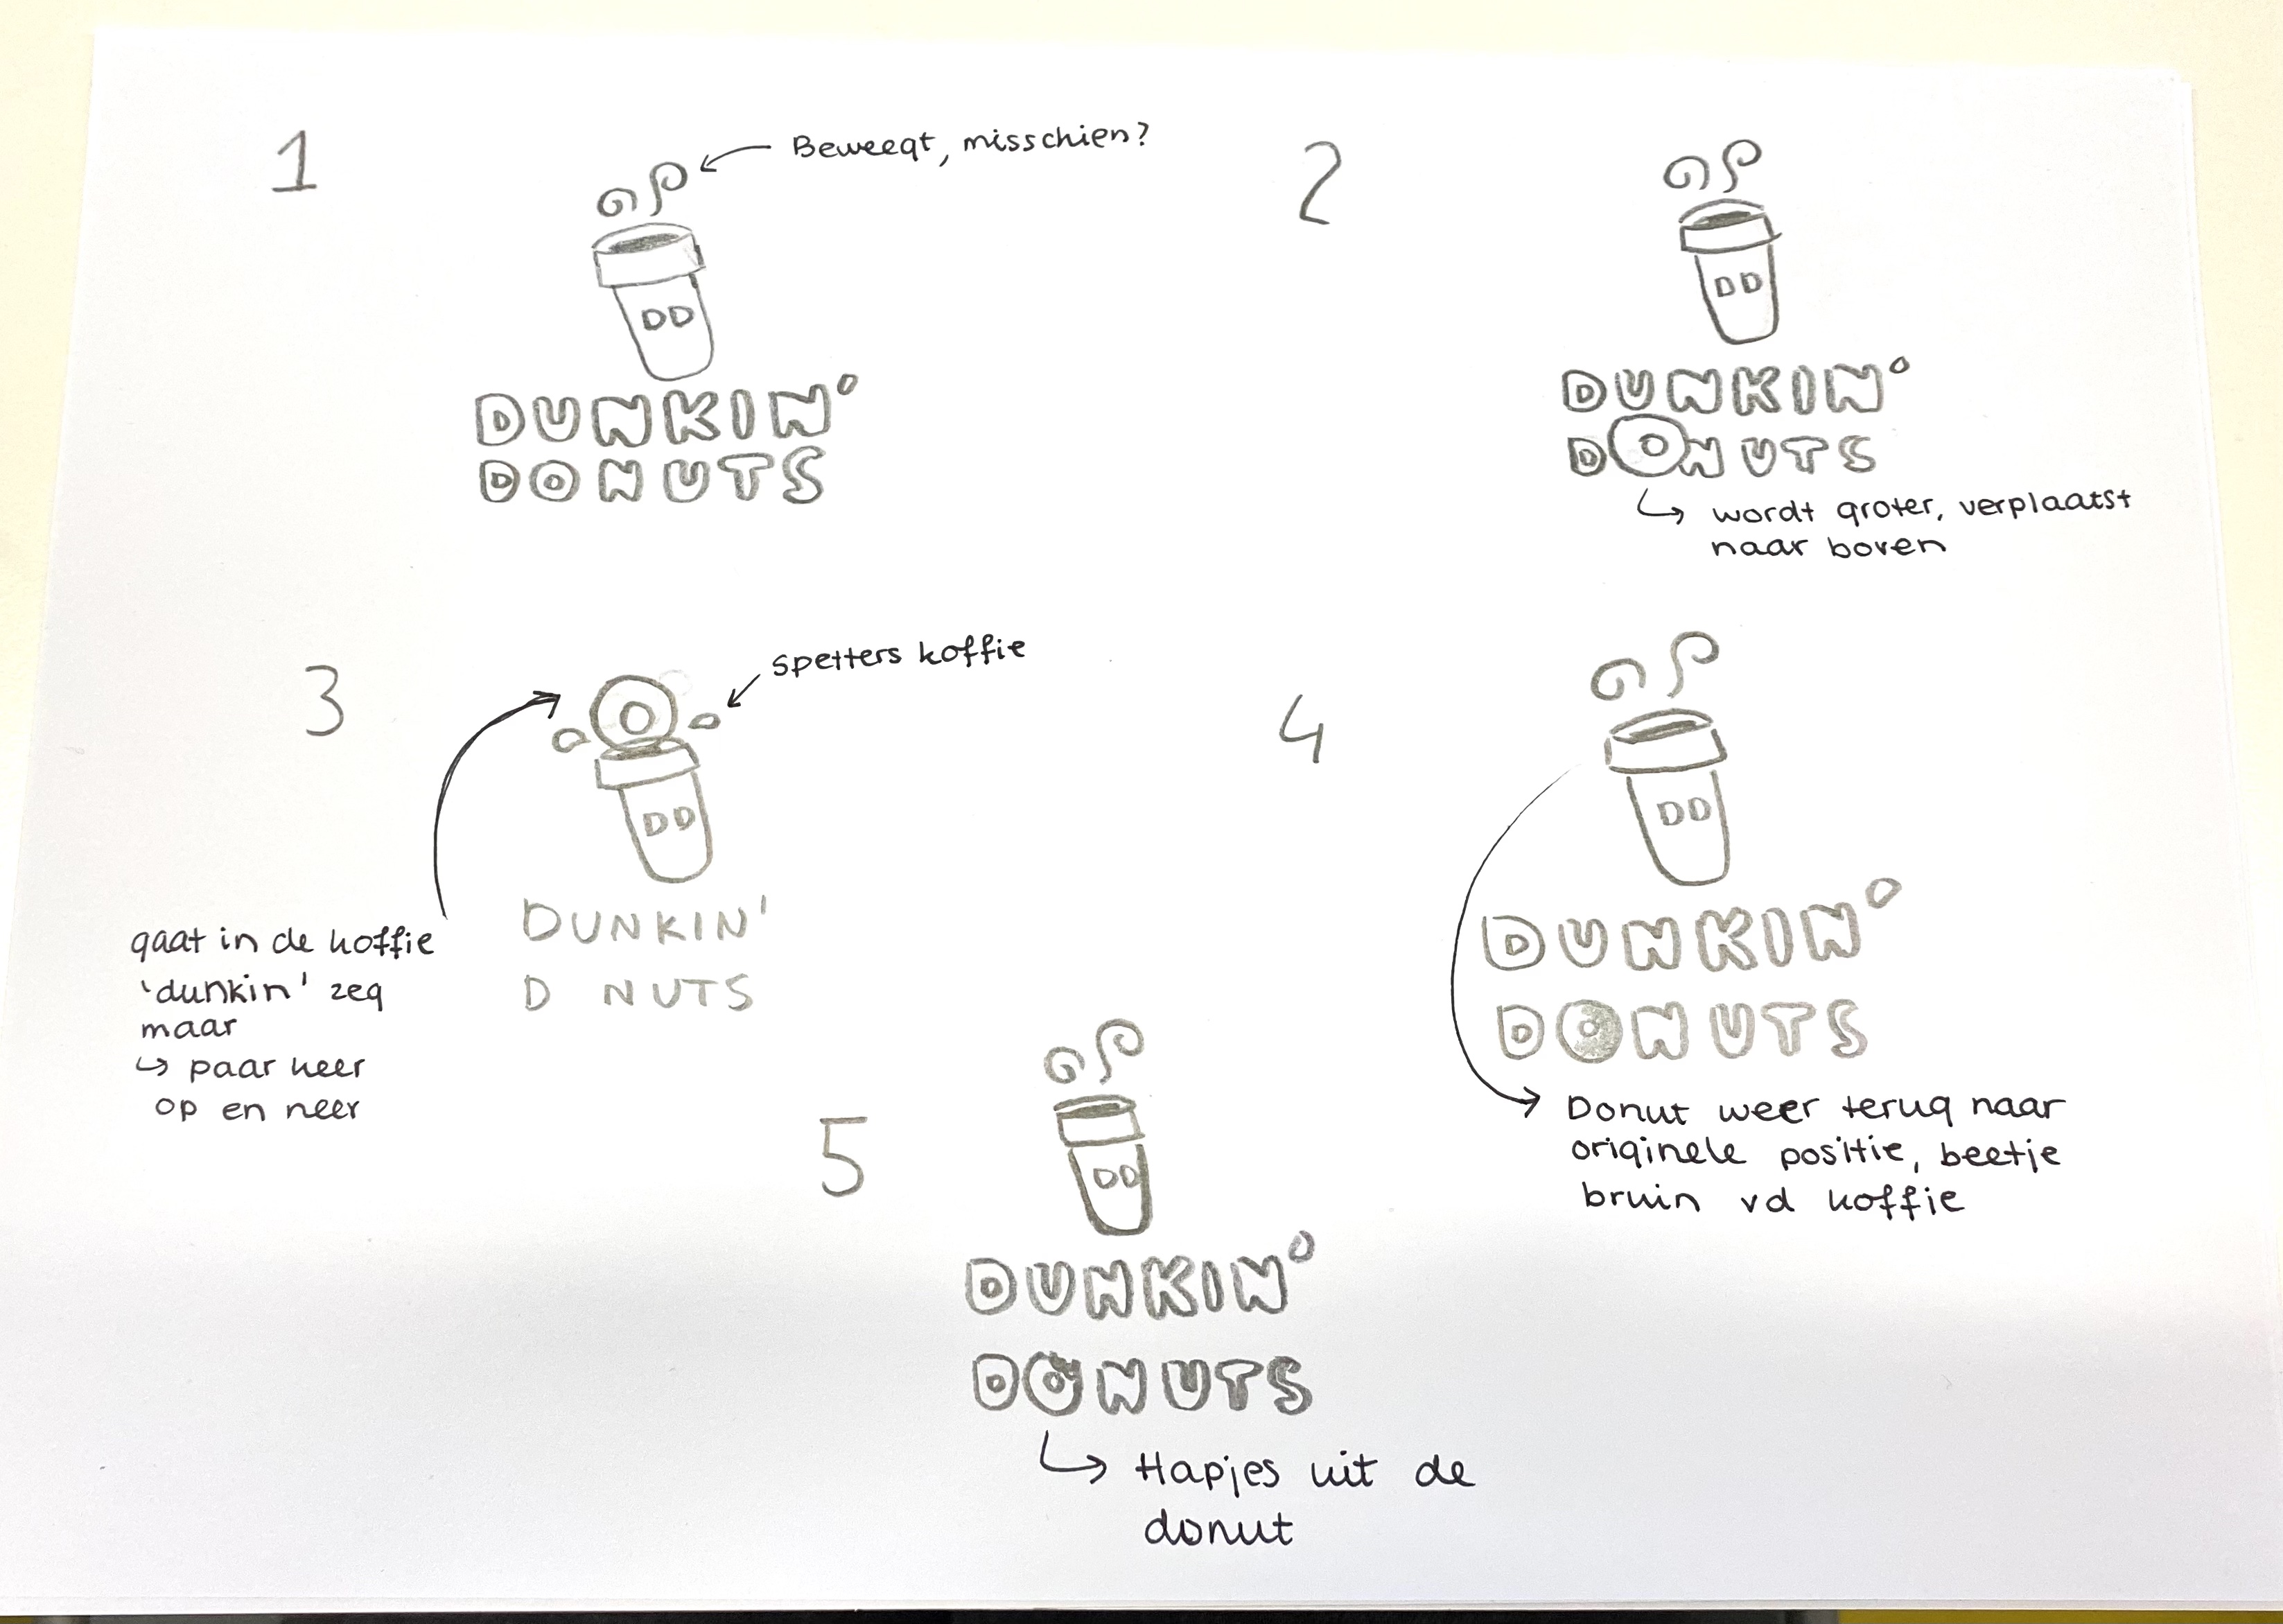 1
Beweegt, misschien?
DD
DUNKIN'
DONUTS
2
DD
DUNKIN'
DONUTS
wordt groter, verplaatst
naar boven
3
spetters koffie
DD
DUNKIN'
D NUTS
gaat in de koffie
'dunkin' zeg
maar
↳ paar keer
op en neer
4
DD
DUNKIN'
DONUTS
Donut weer terug naar
originele positie, beetje
bruin vd koffie
5
DD
DUNKIN'
DONUTS
Hapjes uit de
donut